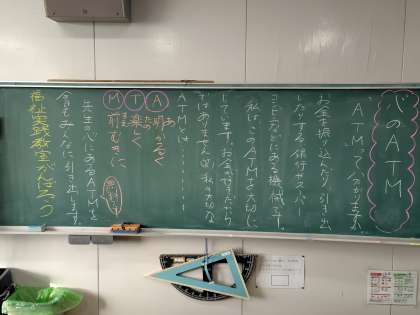 心のATM
"ATM"って分かりますか。
お金を振り込んだり、引き出
したりする銀行やスーパー
コンビニなどにある機械です。
私は、このATMを大切に
しています。お金が
ではありません。私の大切な
ATMとは………
A 明るく
T 楽しく
M 前むきに
先生の心にあるATMを
今日もみんなに引き出します。
福祉実践教室がんばろう